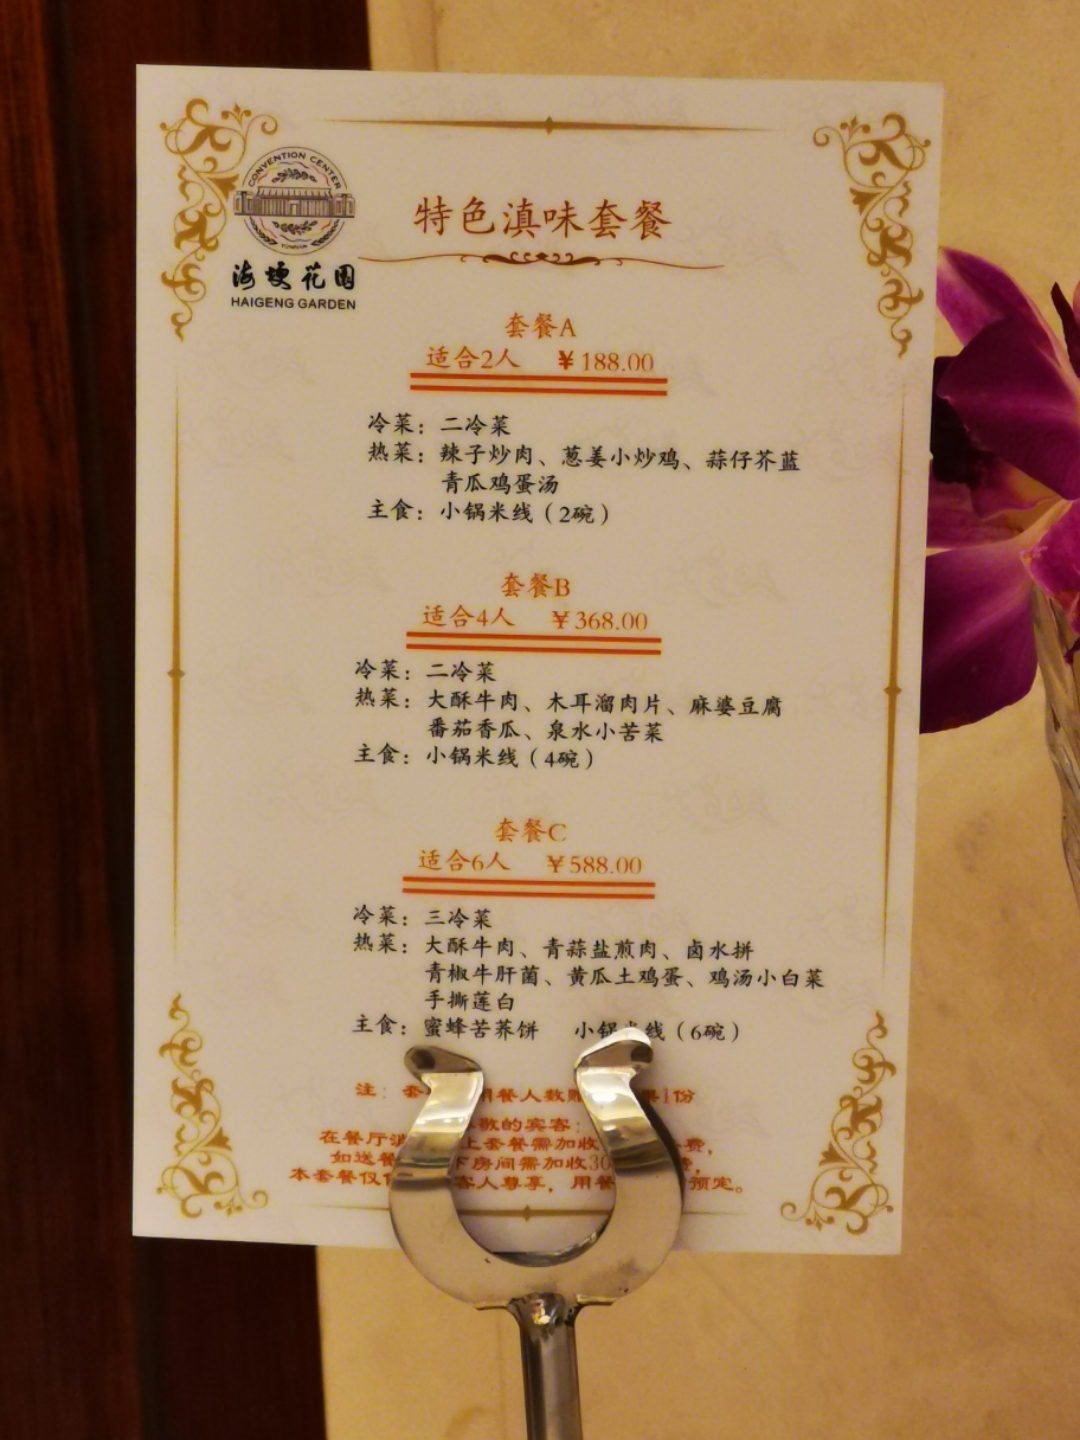 CONVENTION CENTER
YUNNAN
海埂花园
HAIGENG GARDEN
特色滇味套餐
套餐A
适合2人 ¥188.00
冷菜：二冷菜
热菜：辣子炒肉、葱姜小炒鸡、蒜仔芥蓝
青瓜鸡蛋汤
主食：小锅米线（2碗）
套餐B
适合4人 ¥368.00
冷菜：二冷菜
热菜：大酥牛肉、木耳溜肉片、麻婆豆腐
番茄香瓜、泉水小苦菜
主食：小锅米线（4碗）
套餐C
适合6人 ¥588.00
冷菜：三冷菜
热菜：大酥牛肉、青蒜盐煎肉、卤水拼
青椒牛肝菌、黄瓜土鸡蛋、鸡汤小白菜
手撕莲白
主食：蜜蜂苦荞饼 小锅米线（6碗）
注：套 用餐人数 份
敬的宾客：
在餐厅 上套餐需加收 费，
如送餐 下房间需加收30
本套餐仅 客人尊享，用餐 预定。